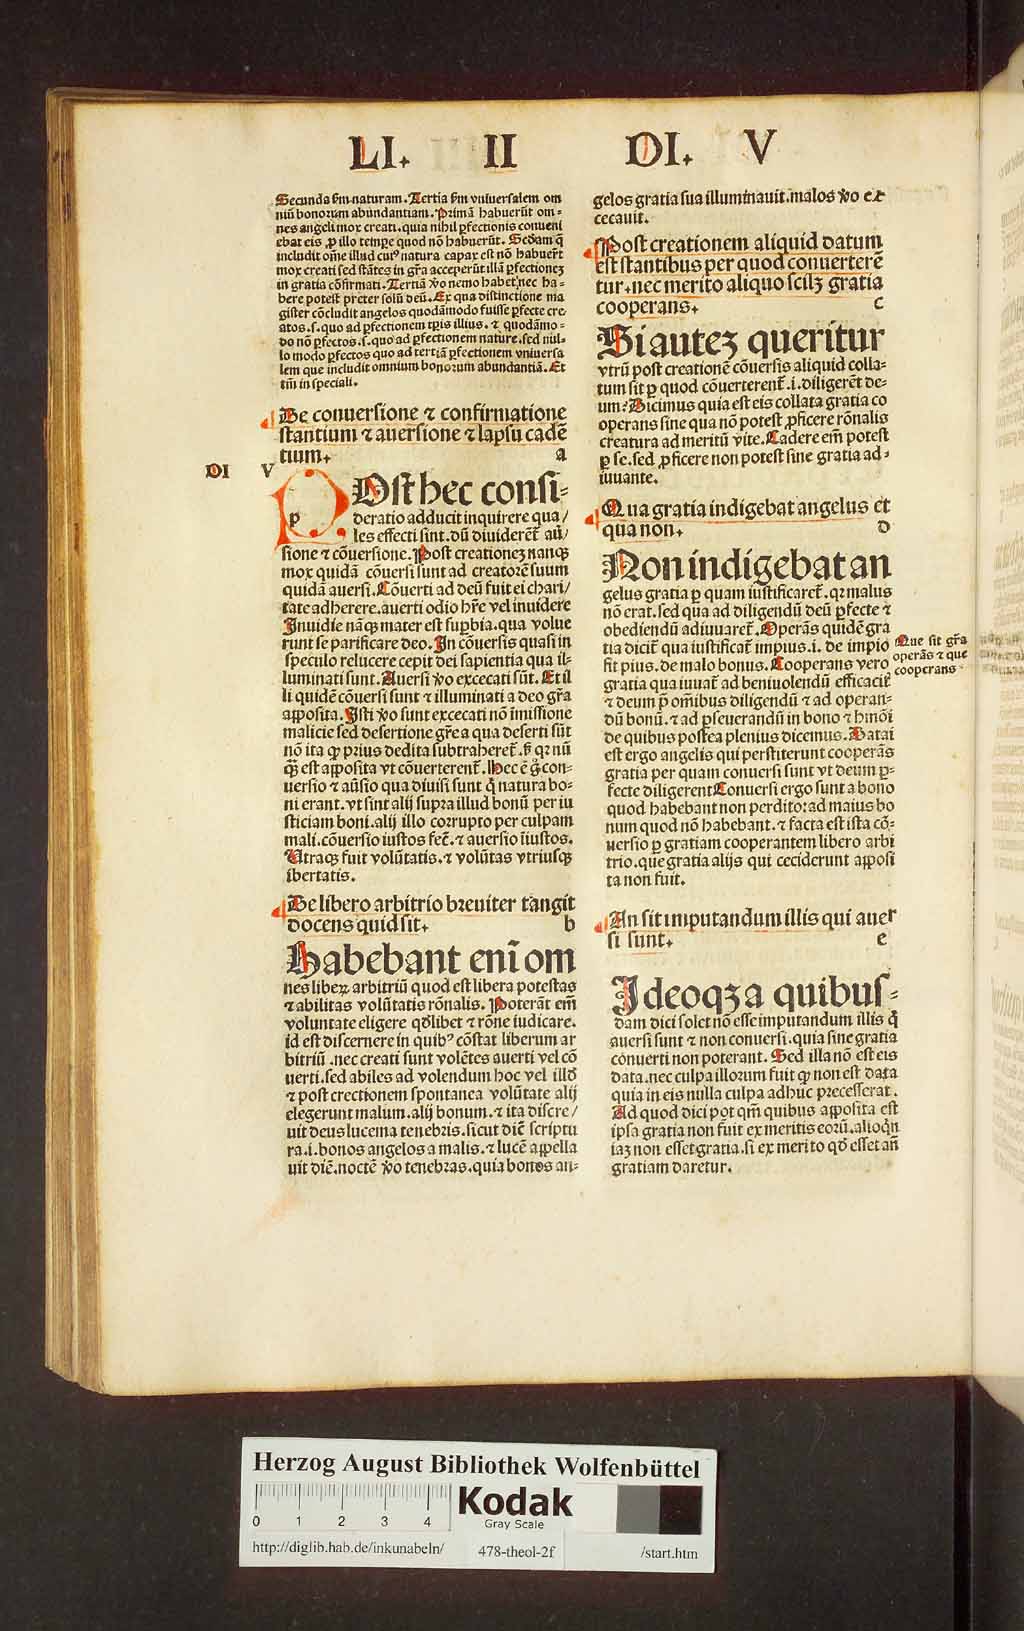 LI. II DI. V
Secunda ẜm naturam. Tertia ẜm vniuersalem om
niũ bonorum abundantiam. Primã habuerũt om⸗
nes angeli mox creati. quia nihil ꝑfectionis conueni
ebat eis ꝓ illo tempe quod nõ habuerũt. Secdam q̃
includit om̃e illud cuiꝰ natura capax est nõ habuer̃t
mox creati sed stãtes in gr̃a acceperũt illã ꝑfectionez
in gratia cõfirmati. Tertiã ꝟo nemo habet, nec ha⸗
bere potest preter solũ deũ. Ex qua distinctione ma
gister cõcludit angelos quodãmodo fuisse ꝑfecte cre
atos. s. quo ad ꝑfectionem tp̃is illius. ⁊ quodãmo⸗
do nõ ꝑfectos. s. quo ad ꝑfectionem nature. sed nul⸗
lo modo ꝑfectos quo ad tertiã ꝑfectionem vniuersa
lem que includit omnium bonorum abundantiã. Et
tm̃ in speciali.
De conuersione ⁊ confirmatione
stantium ⁊ auersione ⁊ lapsu cadẽ
tium. a
DI V
p
POst hec consi⸗
deratio adducit inquirere qua/
les effecti sint. dũ diuiderẽt̃ aũ/
sione ⁊ cõuersione. Post creationez nanqȝ
mox quidã cõuersi sunt ad creatorẽ suum
quidã auersi. Cõuerti ad deũ fuit ei chari/
tate adherere. auerti odio hr̃e vel inuidere
Inuidie nãqȝ mater est suꝑbia. qua volue
runt se parificare deo. In cõuersis quasi in
speculo relucere cepit dei sapientia qua il⸗
luminati sunt. Auersi ꝟo excecati sũt. Et il
li quidẽ cõuersi sunt ⁊ illuminati a deo gr̃a
apposita. Isti ꝟo sunt excecati nõ ĩmissione
malicie sed desertione gr̃e a qua deserti sũt
nõ ita ꝙ prius dedita subtraheret̃. ẜꝫ qꝛ nũ
ꝗ̃ est apposita vt cõuerterent̃. Hec ẽ g̊ con⸗
uersio ⁊ aũsio qua diuisi sunt q̃ natura bo⸗
ni erant. vt sint alij supra illud bonũ per iu
sticiam boni. alij illo corrupto per culpam
mali. cõuersio iustos fec̃. ⁊ auersio ĩiustos.
Utraqȝ fuit volũtatis. ⁊ volũtas vtriusqȝ
ibertatis.
De libero arbitrio breuiter tangit
docens quid sit. b
Habebant enĩ om
nes liberꝫ arbitriũ quod est libera potestas
⁊ abilitas volũtatis rõnalis. Poterãt em̃
voluntate eligere qd̃libet ⁊ rõne iudicare.
id est discernere in quibꝰ cõstat liberum ar
bitriũ. nec creati sunt volẽtes auerti vel cõ
uerti. sed abiles ad volendum hoc vel illd̃
⁊ post crectionem spontanea volũtate alij
elegerunt malum. alij bonum. ⁊ ita discre/
uit deus lucema tenebris. sicut dic̃ scriptu
ra. i. bonos angelos a malis. ⁊ lucẽ appella
uit diẽ. noctẽ ꝟo tenebras. quia bonos an⸗
gelos gratia sua illuminauit. malos ꝟo ex
cecauit.
Post creationem aliquid datum
est stantibus per quod conuerterẽ
tur. nec merito aliquo scilꝫ gratia
cooperans. c
Si autez queritur
vtrũ post creationẽ cõuersis aliquid colla⸗
tum sit ꝑ quod cõuerterent̃. i. diligerẽt de⸗
um? Dicimus quia est eis collata gratia co
operans sine qua nõ potest ꝓficere rõnalis
creatura ad meritũ vite. Cadere em̃ potest
ꝑ se. sed ꝓficere non potest sine gratia ad⸗
iuuante.
Qua gratia indigebat angelus et
qua non. D
Non indigebat an
gelus gratia ꝑ quam iustificaret̃. qꝛ malus
nõ erat. sed qua ad diligendũ deũ ꝑfecte ⁊
obediendũ adiuuaret̃. Operãs quidẽ gra
tia dicit̃ qua iustificat̃ impius. i. de impio
fit pius. de malo bonus. Cooperans vero
gratia qua iuuat̃ ad beniuolendũ efficacit̃
⁊ deum p̃ omĩbus diligendũ ⁊ ad operan⸗
dũ bonũ. ⁊ ad ꝑseuerandũ in bono ⁊ hmõi
de quibus postea plenius dicemus. Datai
est ergo angelis qui perstiterunt cooperãs
gratia per quam conuersi sunt vt deum ꝑ⸗
fecte diligerent Conuersi ergo sunt a bono
quod habebant non perdito: ad maius bo
num quod nõ habebant. ⁊ facta est ista cõ⸗
uersio ꝑ gratiam cooperantem libero arbi
trio. que gratia alijs qui ceciderunt apposi
ta non fuit.
Que sit gr̃a
operãs ⁊ que
cooperans
An sit imputandum illis qui auer
si sunt. e
Ideoqȝ a quibus⸗
dam dici solet nõ esse imputandum illis q̃
auersi sunt ⁊ non conuersi. quia sine gratia
conuerti non poterant. Sed illa nõ est eis
data. nec culpa illorum fuit ꝙ non est data
quia in eis nulla culpa adhuc precesserat.
Ad quod dici pot qm̃ quibus apposita est
ipsa gratia non fuit ex meritis eorũ. alioqn̄
iaꝫ non esset gratia. si ex merito qd̃ esset añ
gratiam daretur.
Herzog August Bibliothek Wolfenbüttel
0 1 2 3 4
Kodak
Gray Scale
http://diglib.hab.de/inkunabeln/ 478-theol-2f /start.htm